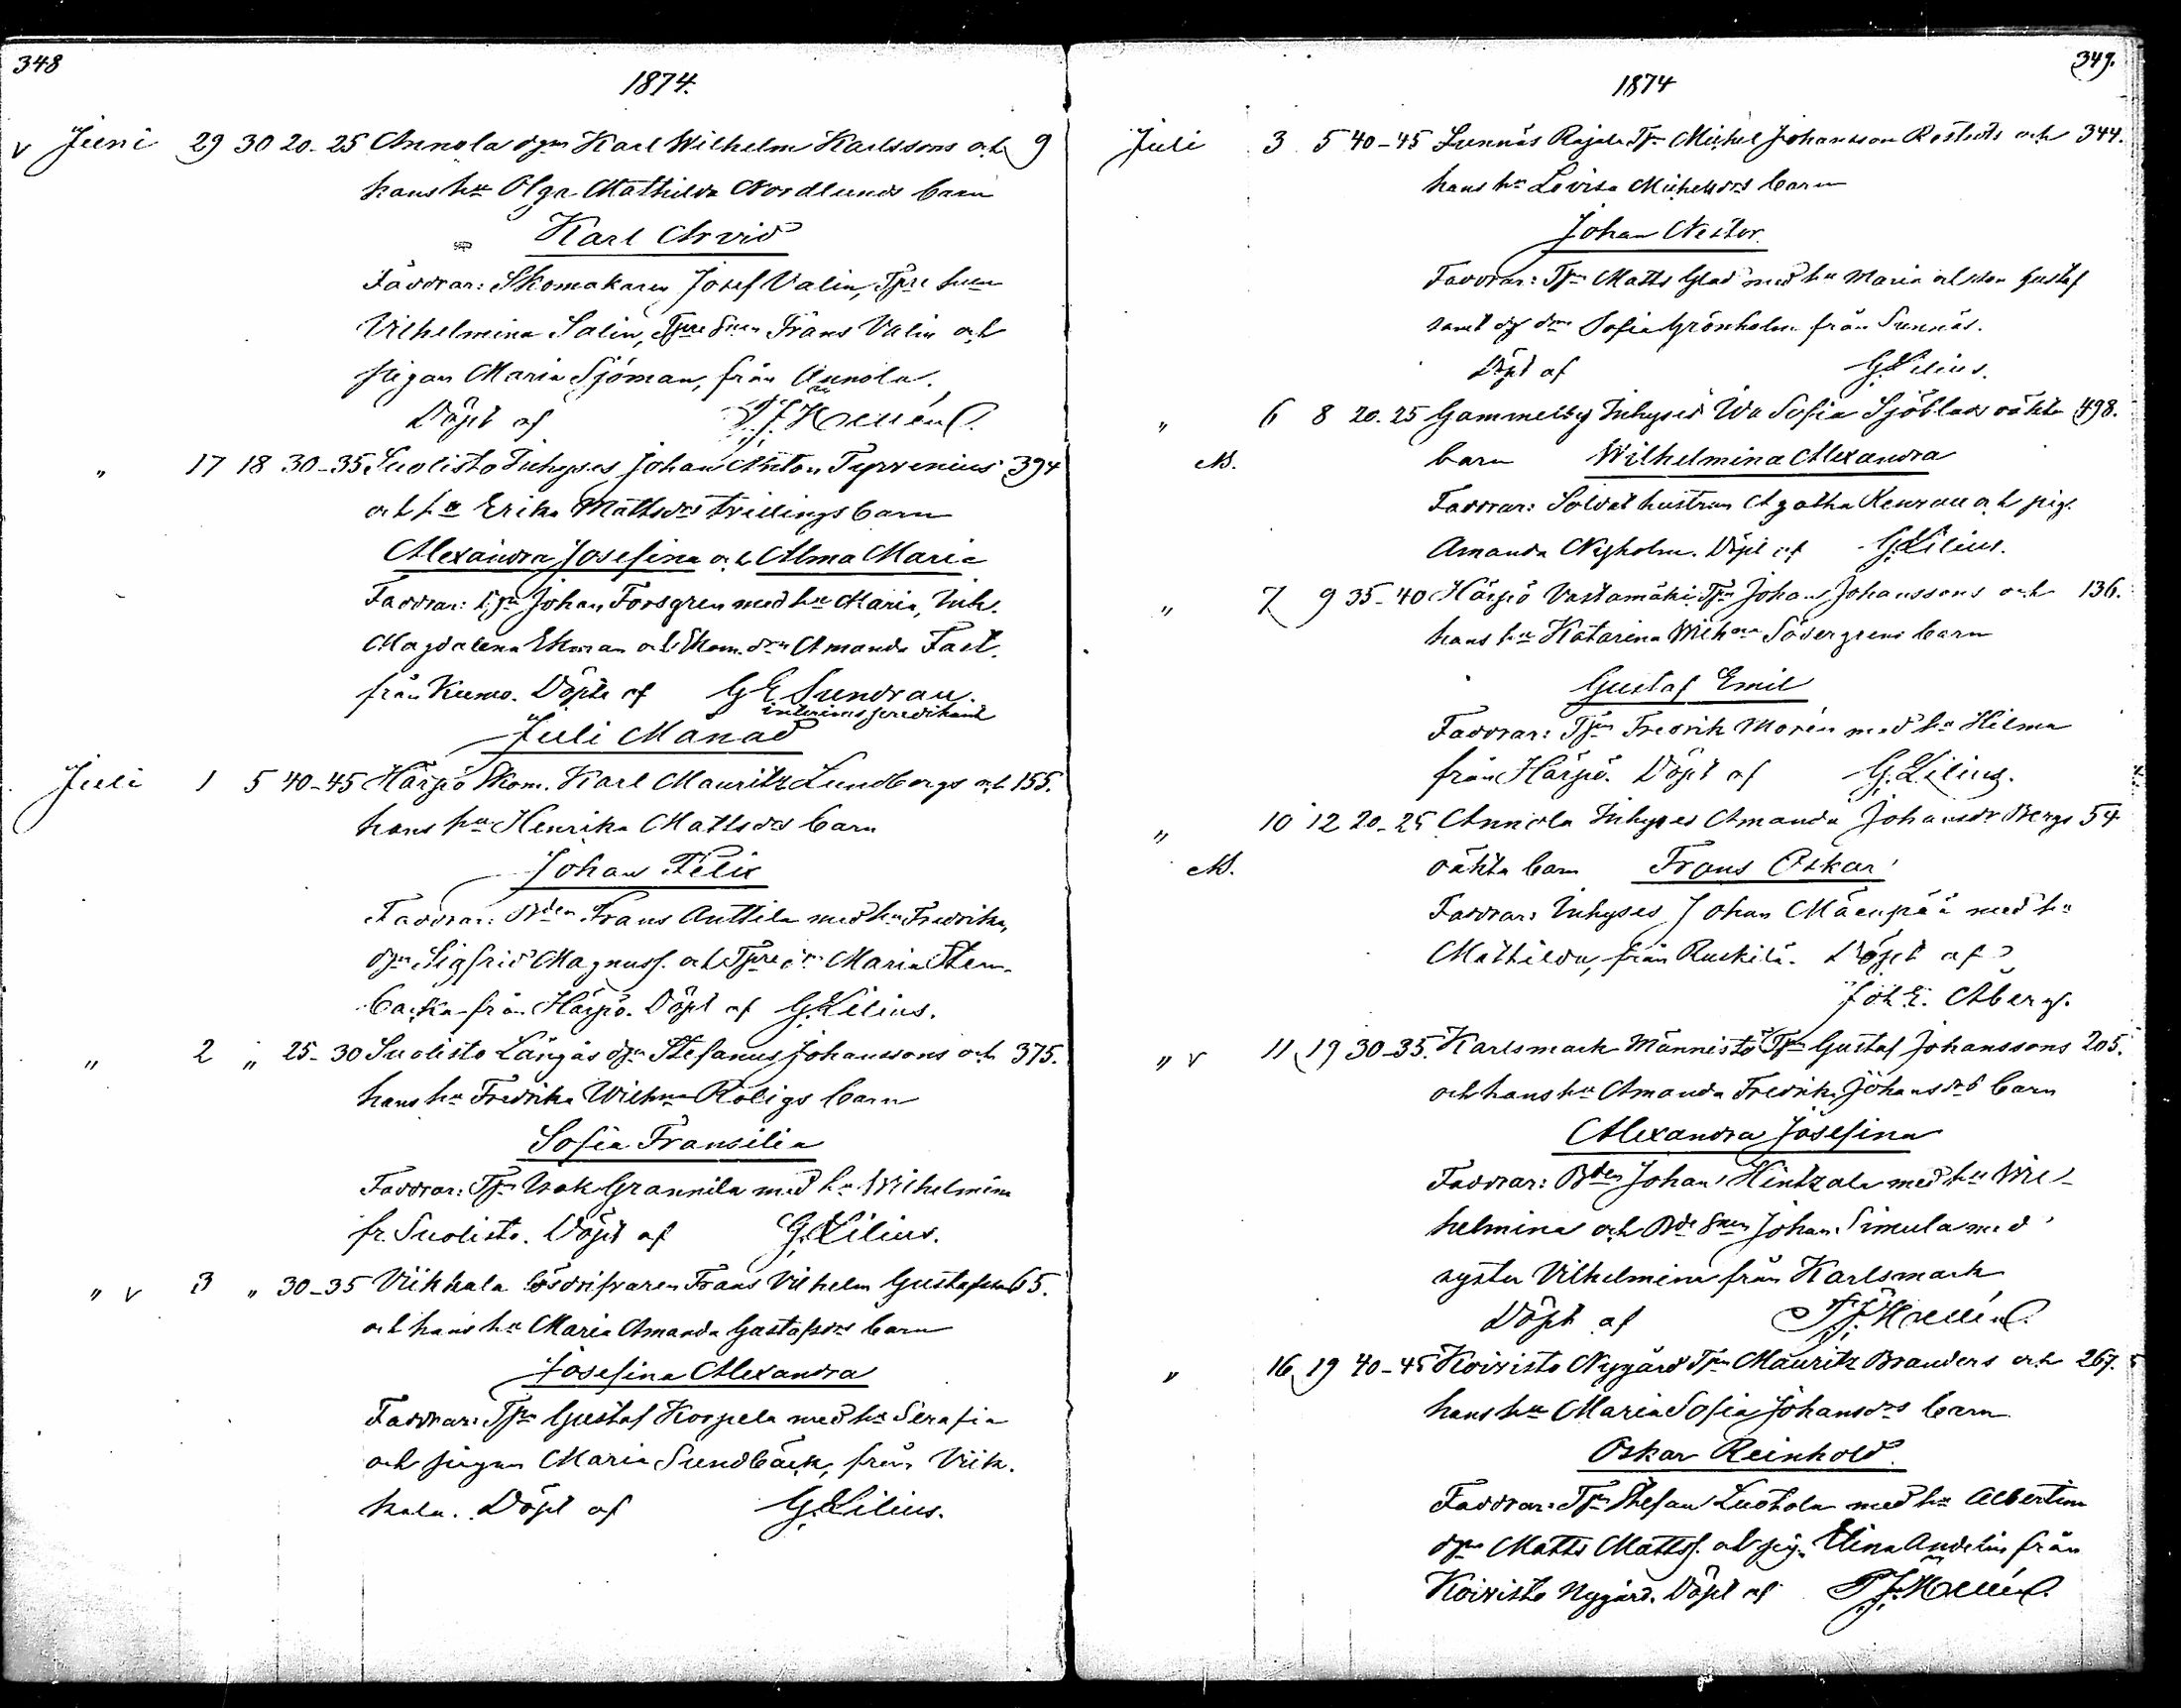 348
1874.
v Juni 29 30 20-25 Annola dgn Karl Wilhelm Karlssons och 9
hans hu Olga Mathilda Nordlunds barn
Karl Arvid
Faddrar: Skomakaren Josef Valin, Tpre
Vilhelmina Salin, Tpre Snen Frans Valin och
pigan Maria Sjöman, från Annola.
Döpt af
" 17 18 30-35 Suolisto Inhyses Johan Anton Tyrvenius 394
och hu Erika Mattsdrs tvillingsbarn
Alexandra Josefina och Alma Maria
Faddrar: Johan Forsgren med hu Maria, Inh.
Magdalena Ekman och Skom. drn Amanda Fast.
från Kumo. Döpta af G E Sundvall.
interims predikant
Juli Månad
Juli 1 5 40-45 Härpö Skom. Karl Mauritz Lundbergs och 155.
hans hu Henrika Mattsdrs barn
Johan Felix
Faddrar: Bden Frans Anttila med hu Fredrika,
dgn Sigfrid Magnuss. och Tpre drn Maria Sten-
backa från Härpö. Döpt af G. Lilius.
" 2 " 25-30 Suolisto Långås dgn Stefanus Johanssons och 375.
hans hu Fredrika Wilhna Roligs barn
Sofia Fransilia
Faddrar: Tpn Isak Grannila med hu Wilhelmina
fr. Suolisto. Döpt af G. Lilius.
" v 3 " 30-35 Viikkala lösdrifvaren Frans Vilhelm Gustafssons 65.
och hans hu Maria Amanda Gustafsdrs barn
Josefina Alexandra
Faddrar: Tpn Gustaf Korpela med hu Serafia
och pigan Maria Sundbäck, från Viik-
kala. Döpt af G. Lilius.
349.
1874
Juli 3 5 40-45 Sunnäs Rajala Tpn Michel Johansson Rosteds och 344.
hans hu Lovisa Michelsdrs barn
Johan Nestor.
Faddrar: Tpn Matts Glad med hu Maria och son Gustaf
samt dg drn Sofia Grönholm från Sunnäs.
Döpt af G. Lilius.
" 6 8 20-25 Gammelby Inhyses Sofia Sjöblads oäkta 498.
NB. barn Wilhelmina Alexandra
Faddrar: Soldat hustrun Agatha och pig.
Amanda Nyholm. Döpt af G. Lilius.
" 7 9 35-40 Härpö Vastamäki Tpn Johan Johanssons och 136.
hans hu Katarina Wilhna Södergrens barn
Gustaf Emil
Faddrar: Tpn Fredrik Morén med hu Hilma
från Härpö. Döpt af G. Lilius.
" 10 12 20-25 Annola Inhyses Amanda Johansdr Bergs 54
NB. oäkta barn Frans Oskar
Faddrar: Inhyses Johan Mäenpää med hu
Mathilda, från Ruskila. Döpt af
Joh E. Åberg.
" v 11 19 30-35. Karlsmark Männistö Tpn Gustaf Johanssons 205.
och hans hu Amanda Fredrika Johansdrs barn
Alexandra Josefina
Faddrar: Bden Johan Hintzala med hu Wil-
helmina och Bde Snen Johan Simula med
syster Vilhelmina från Karlsmark
Döpt af
" 16 19 40-45 Koivisto Nygård Tpn Mauritz Branders och 267.
hans hu Maria Sofia Johansdrs barn
Oskar Reinhold.
Faddrar: Tpn Stefan Luotola med hu Albertina
dgn Matts Mattss. och pig. Elina Andelin från
Koivisto Nygård. Döpt af